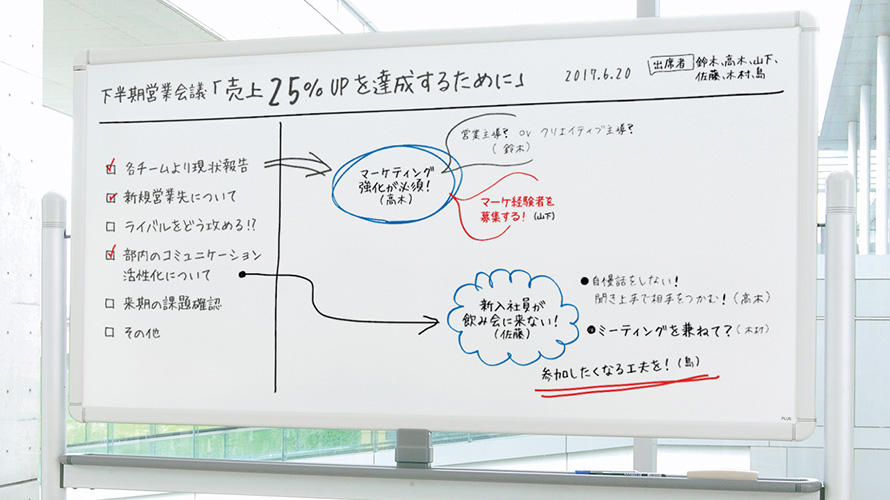 下半期営業会議「売上25%UPを達成するために」
2017.6.20
出席者 鈴木、高木、山下、
佐藤、木村、島
各チームより現状報告
新規営業先について
ライバルをどう攻める!?
部内のコミュニケーション
活性化について
来期の課題確認
その他
営業主導? or クリエイティブ主導?
(鈴木)
マーケティング
強化が必須!
(高木)
マーケ経験者を
募集する!(山下)
新入社員が
飲み会に来ない!
(佐藤)
●自慢話をしない!
聞き上手で相手をつかむ!(高木)
●ミーティングを兼ねて?(木村)
参加したくなる工夫を!(島)
PLUS